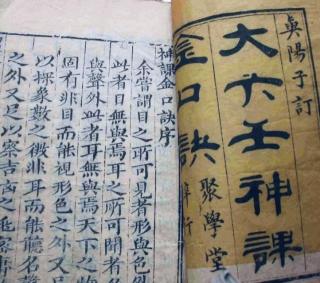 眞陽子訂
大六壬神課
金口訣
聚學堂
梓行
神課金口訣序
余嘗謂目之所可見者形與色
此者目無與焉耳之所可聞者名
與聲外此者耳無與焉天下之
固有非目而能視形色之外又
以探象數之微非耳而能聽名
之外又足以察吉凶之